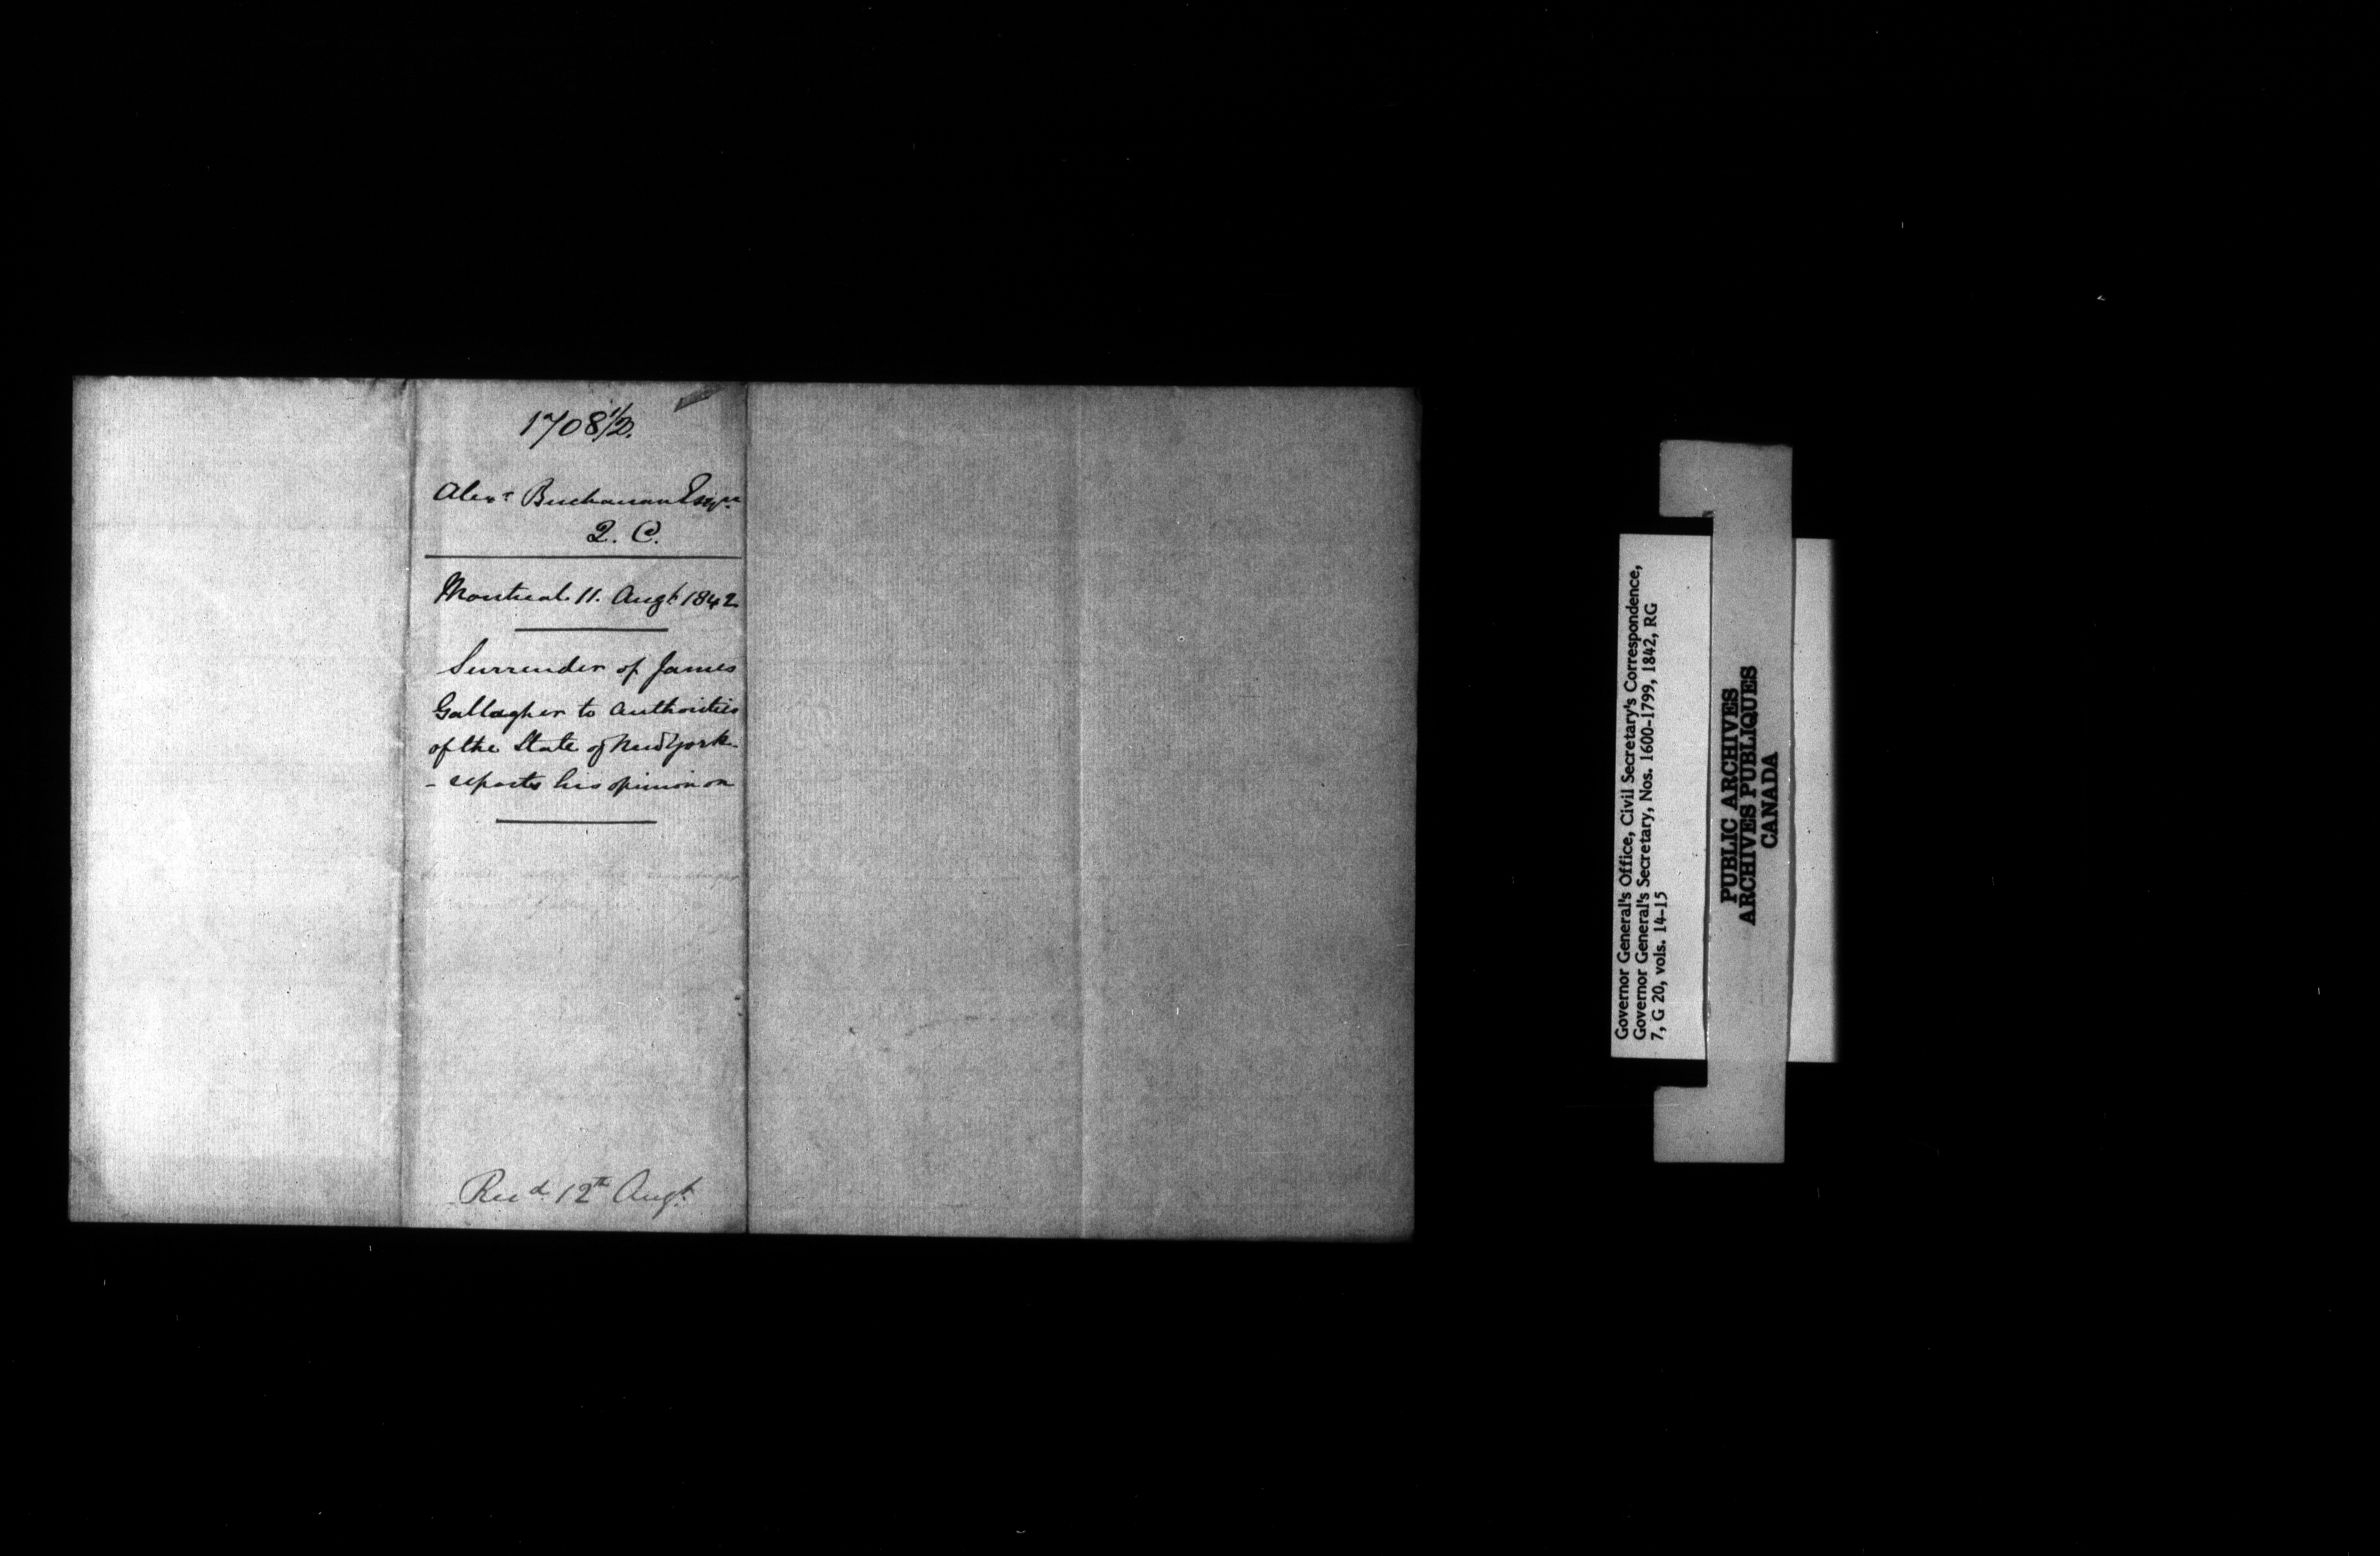 1708 1/2.
Alexr Buchanan Esqre
Q. C.
Montreal 11. Augt 1842
Surrender of James
Gallagher to Authorities
of the State of New York
- reports his opinion on
Recd 12th Augt
Governor General's Office, Civil Secretary's Correspondence,
Governor General's Secretary, Nos. 1600-1799, 1842, RG
7, G 20, vols. 14-15
PUBLIC ARCHIVES
ARCHIVES PUBLIQUES
CANADA